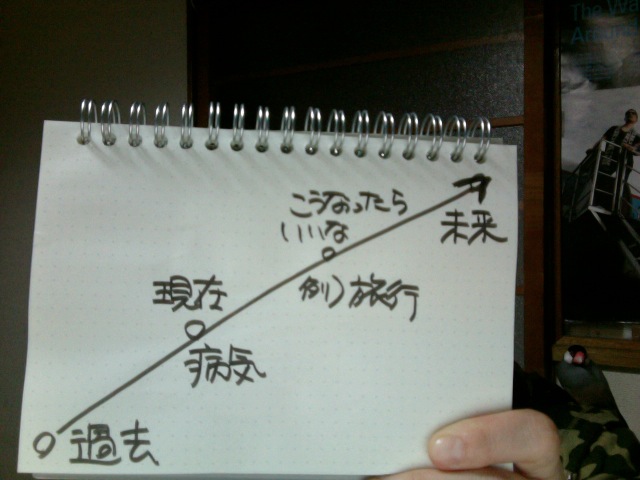 The Wa
Aroun
こうなったら
いいな
未来
現在
例)旅行
病気
過去